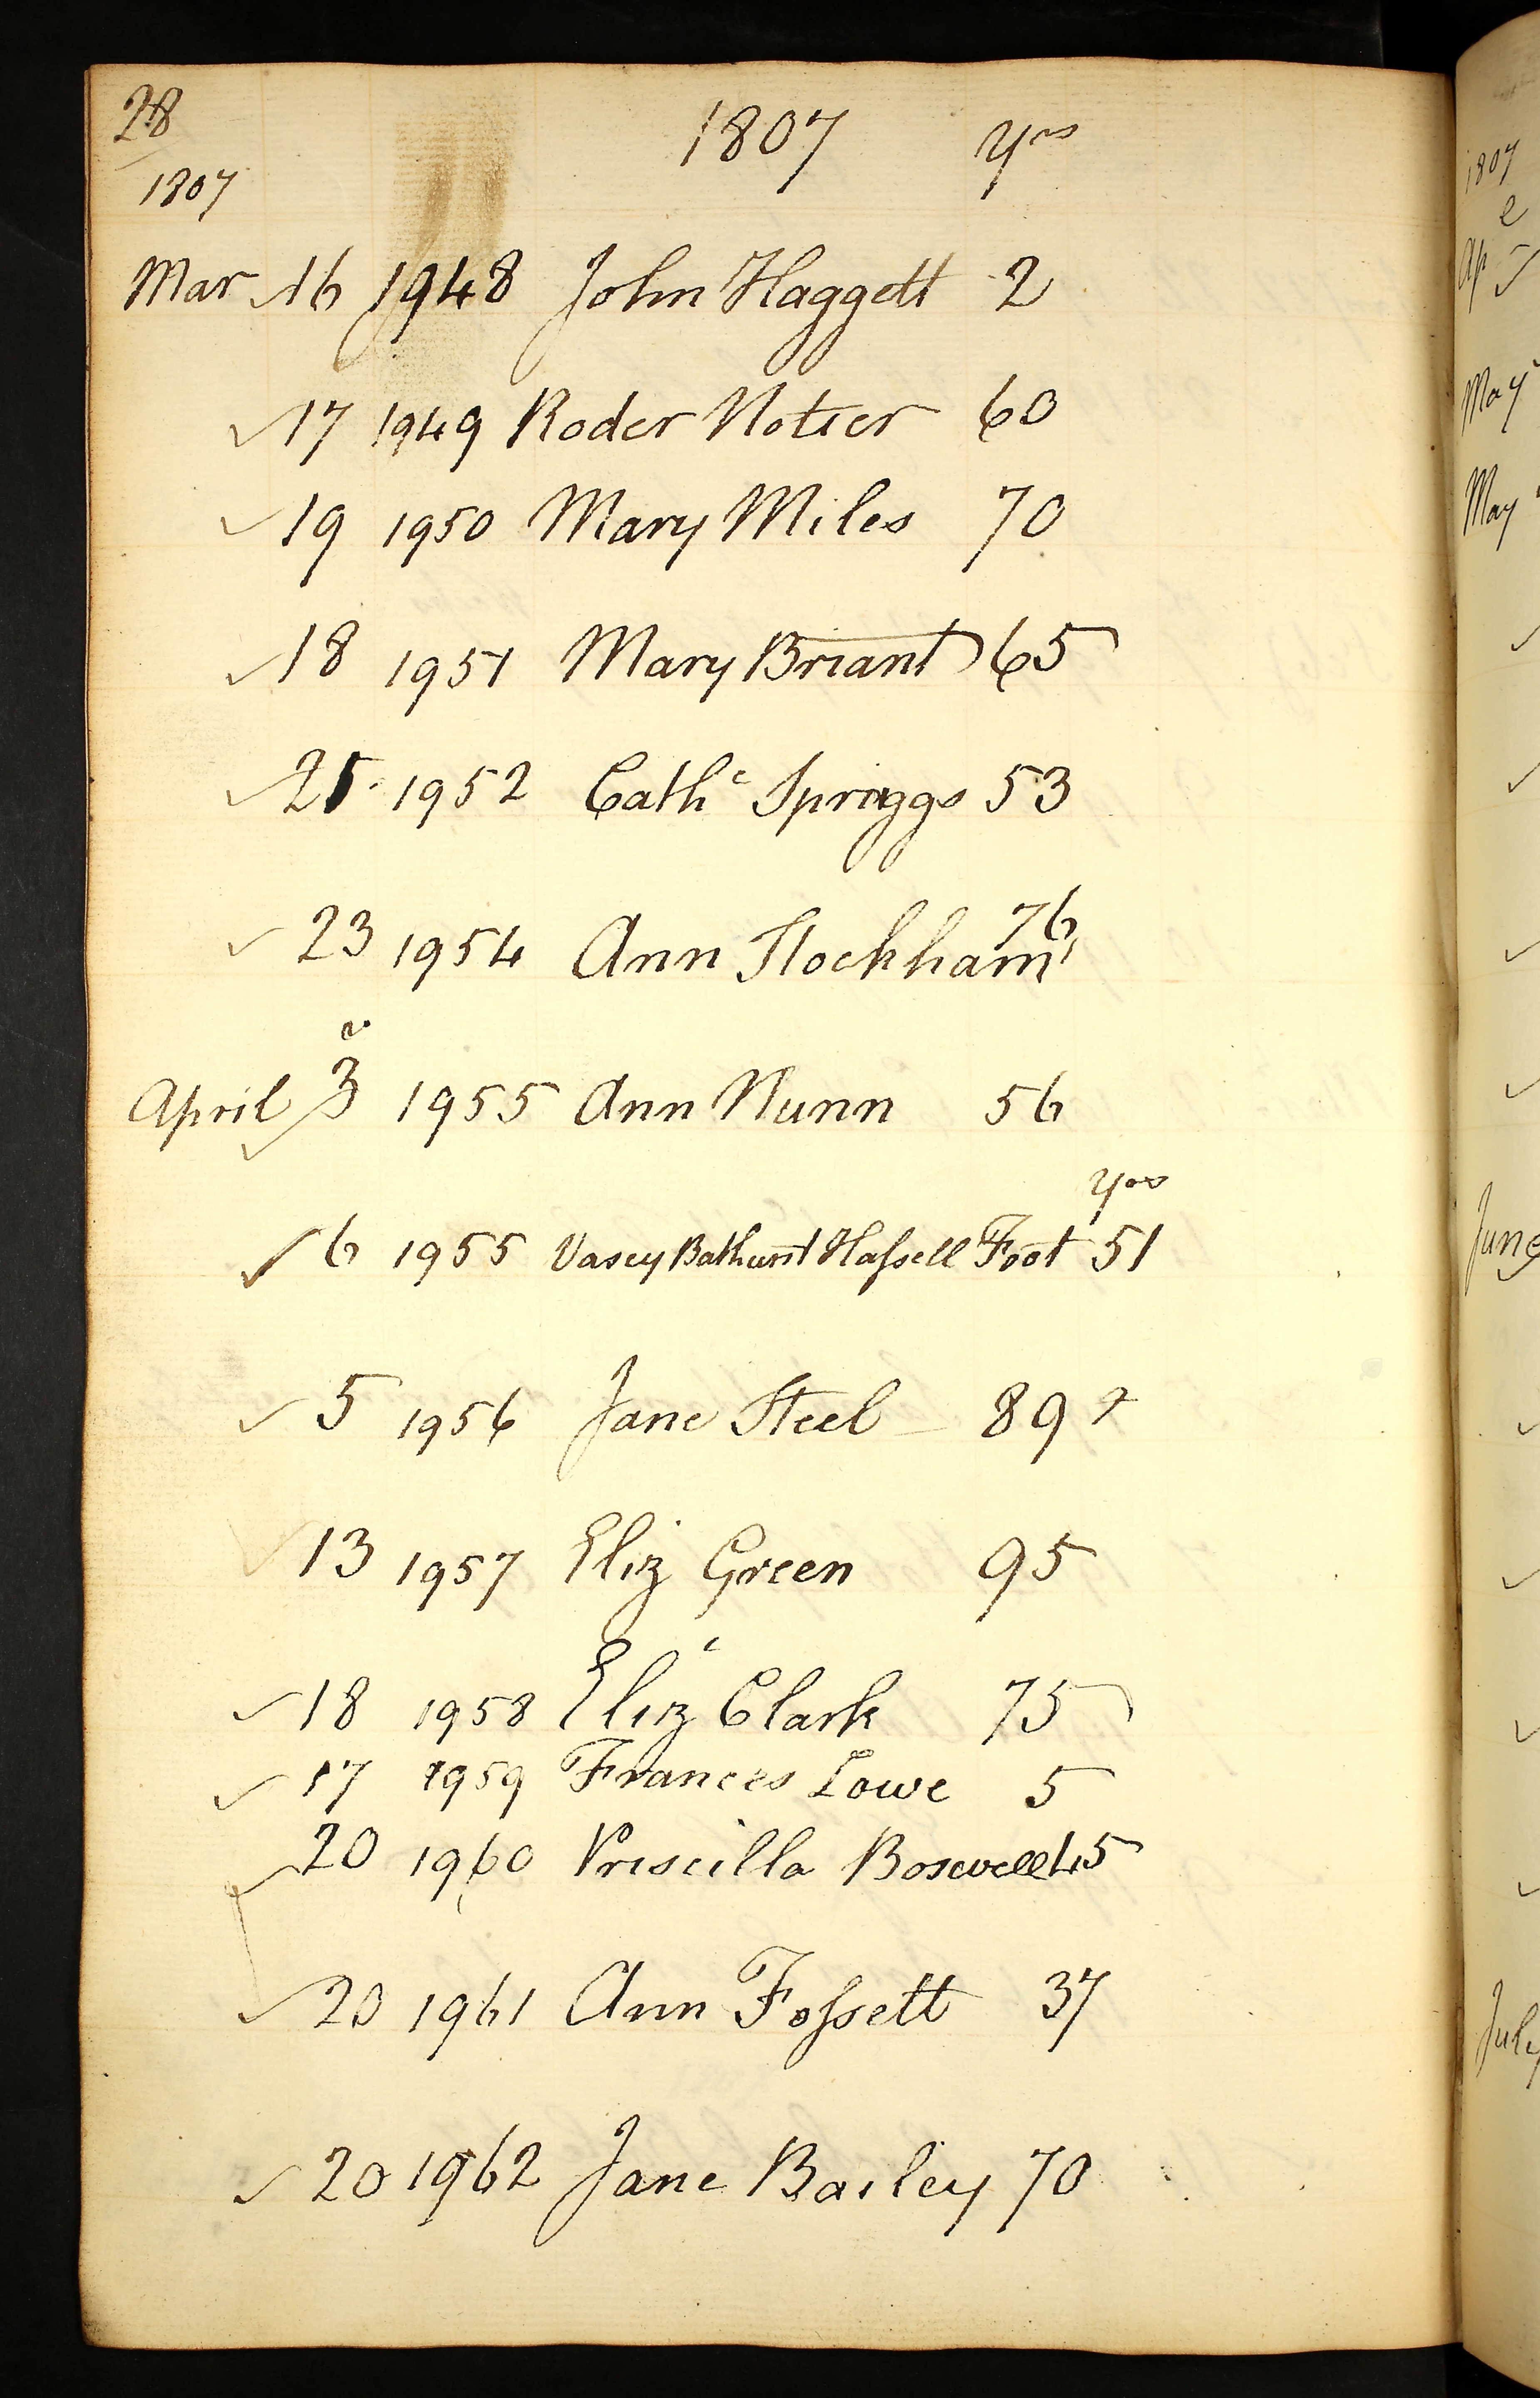 28
1807 yrs
1807
Mar 16 1948 John Haggett 2
17 1949 Roder Notier 60
19 1950 Mary Miles 70
18 1951 Mary Briant 65
25 1952 Cathe Spriggs 53
23 1954 Ann Stockham 76
e
April 3 1955 Ann Nunn 56
yrs
6 1955 Vasey Bathurst Haſsell Foot 51
5 1956 Jane Steel 89
13 1957 Eliz Green 95
18 1958 Eliz Clark 75
17 1959 Frances Lowe 5
20 1960 Priscilla Boswell 45
20 1961 Ann Foſsett 37
20 1962 Jane Bailey 70
1807
e
Ap
May
May
June
July